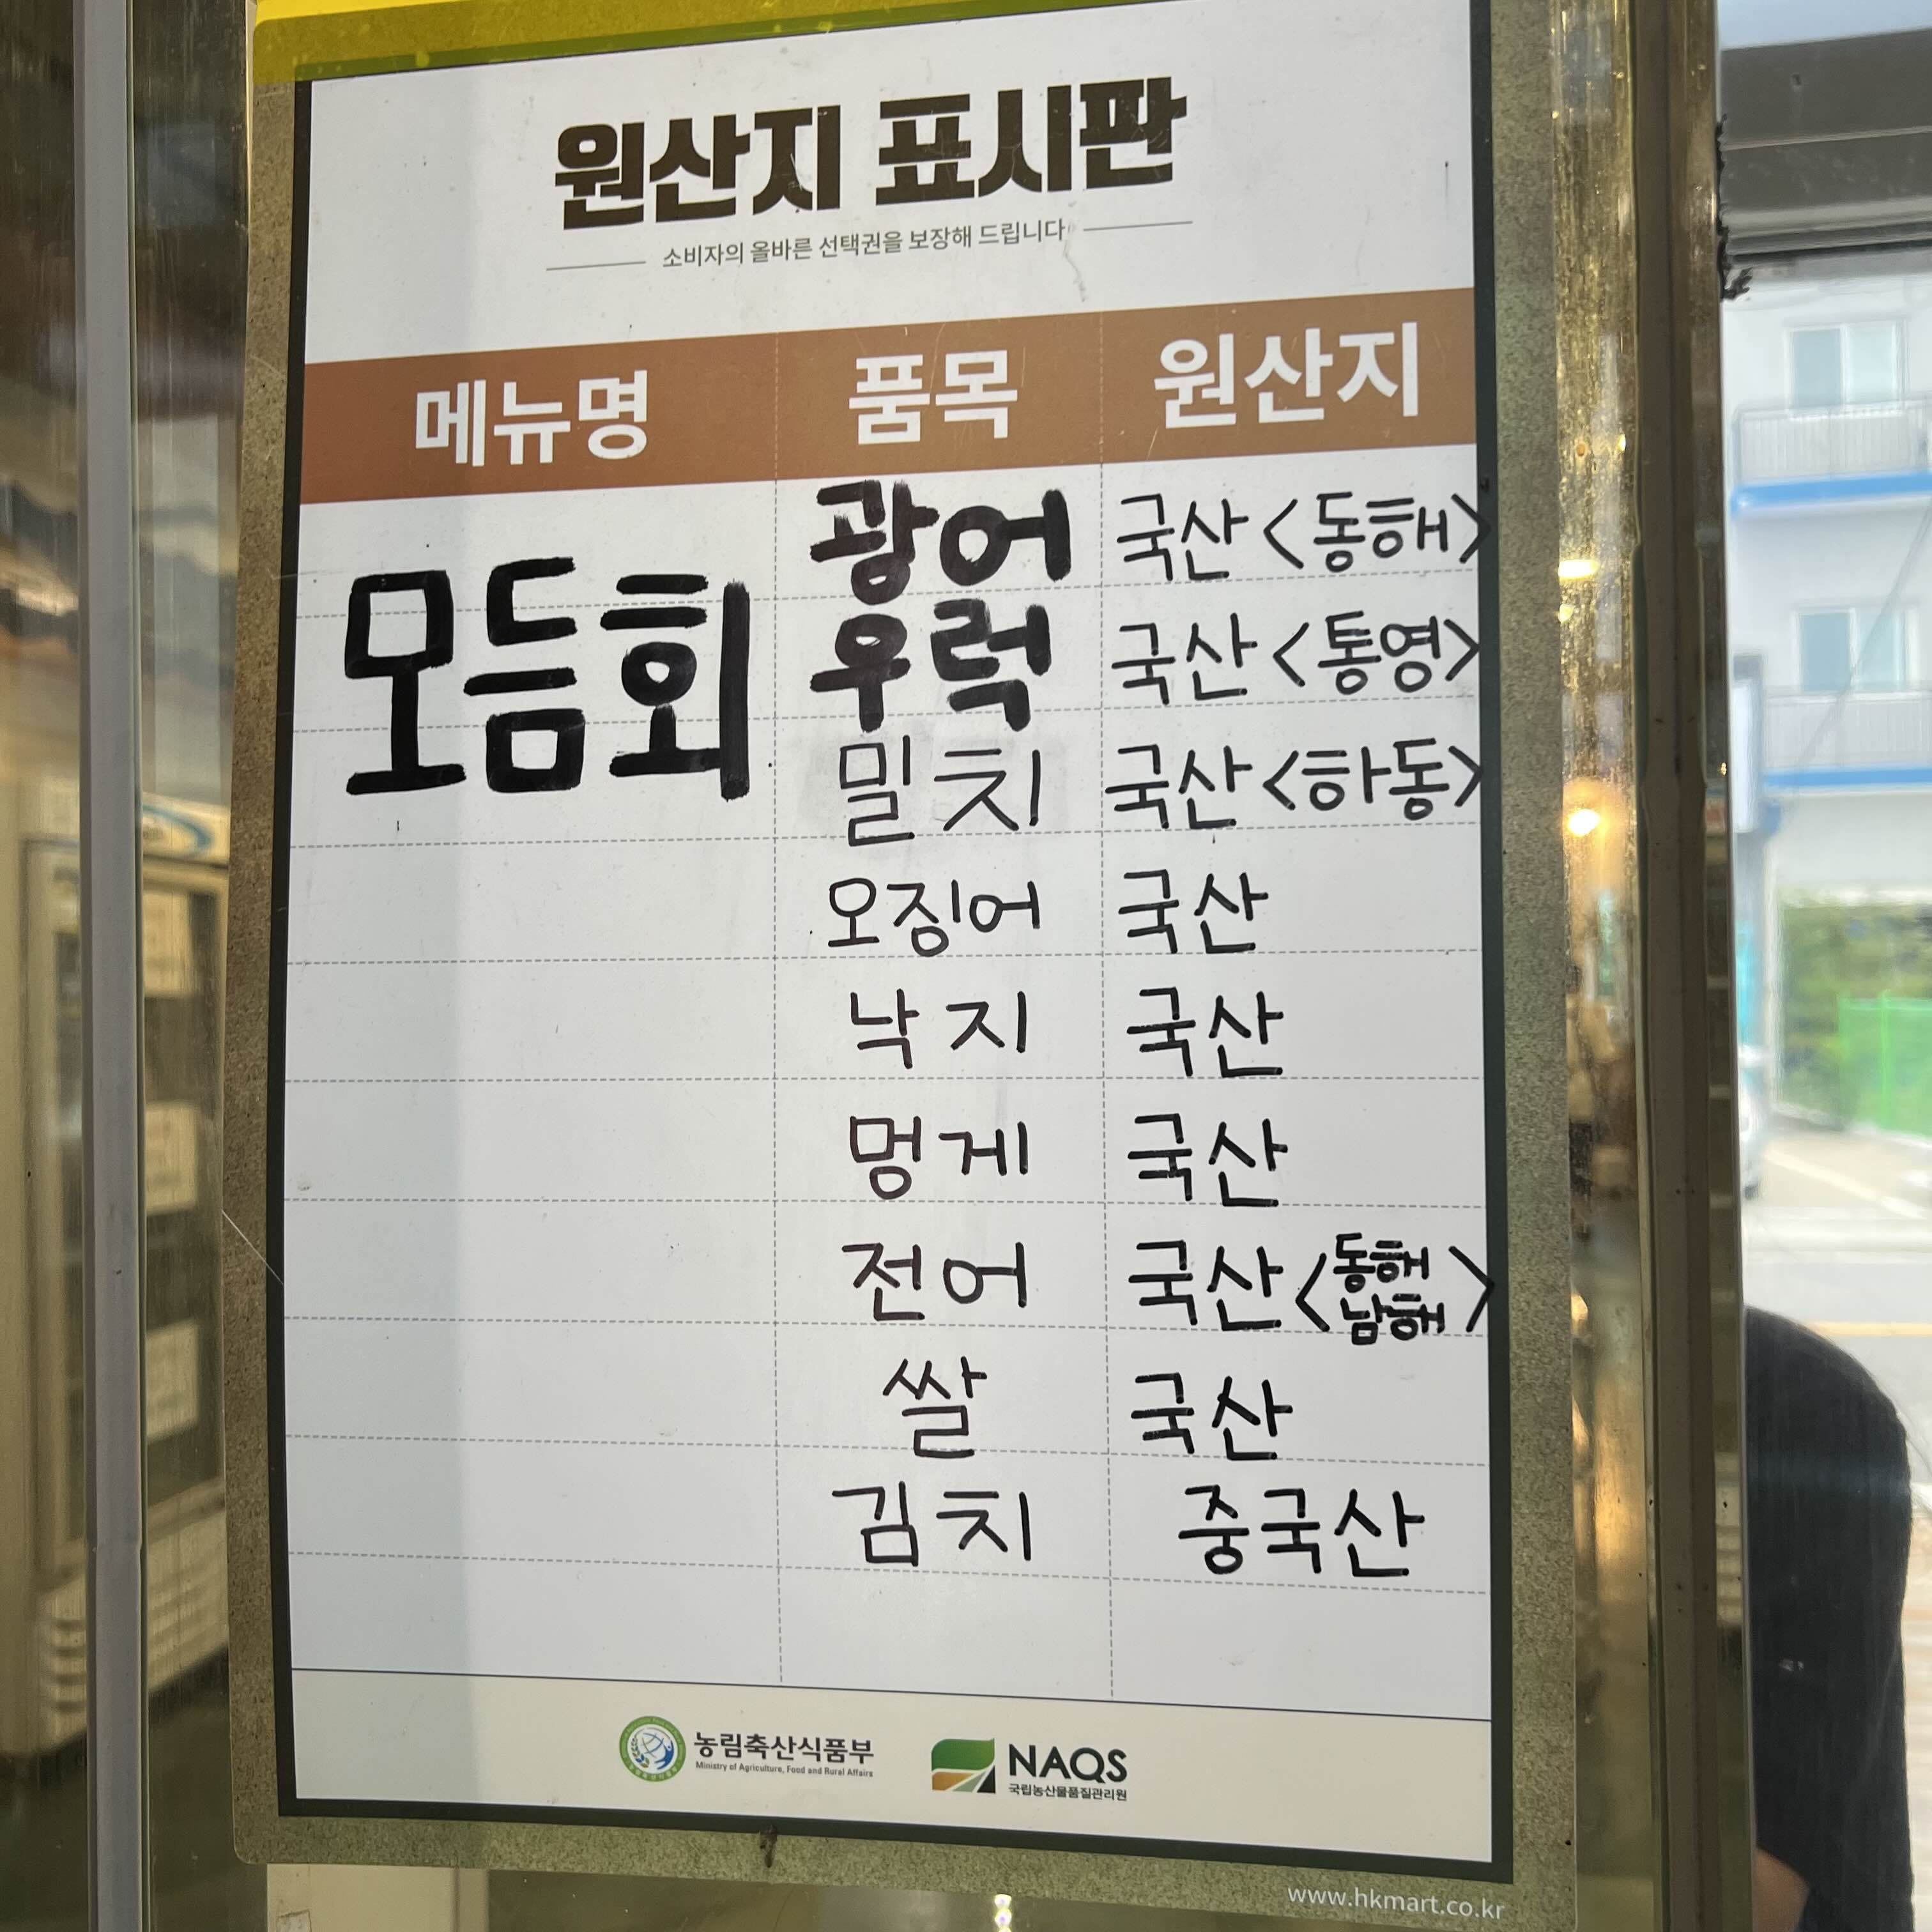 원산지 표시판
소비자의 올바른 선택권을 보장해 드립니다
메뉴명 품목 원산지
모듬회
광어 국산<동해>
우럭 국산<통영>
밀치 국산<하동>
오징어 국산
낙지 국산
멍게 국산
전어 국산<동해 남해>
쌀 국산
김치 중국산
농림축산식품부
Ministry of Agriculture, Food and Rural Affairs
NAQS
국립농산물품질관리원
www.hkmart.co.kr